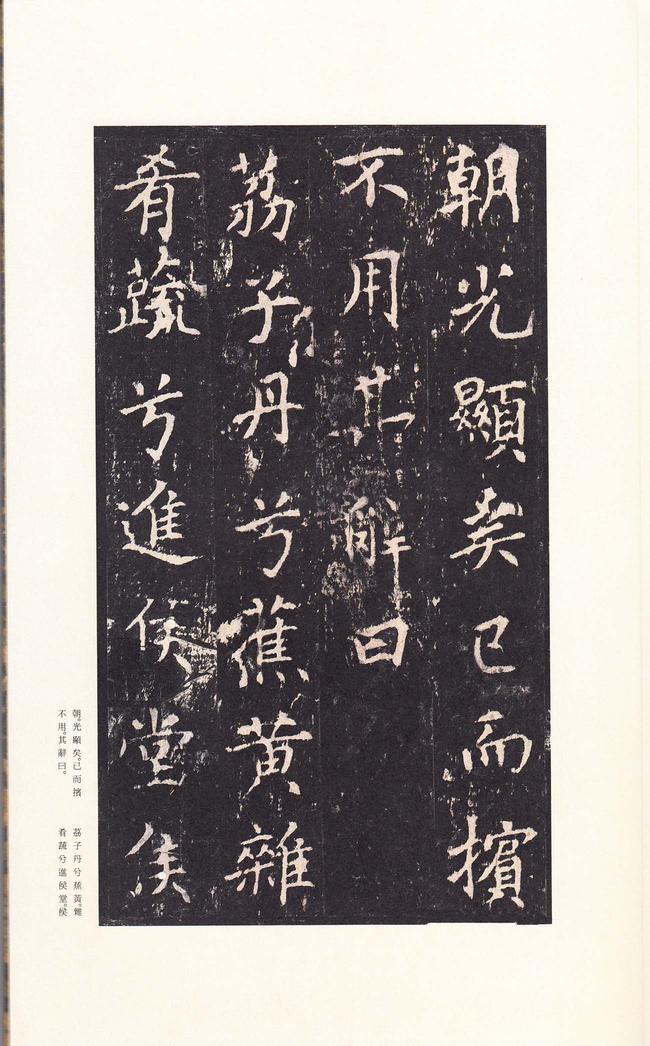 朝光顯矣已而擯
不用其辭曰
荔子丹兮蕉黄雜
肴蔬兮進侯堂侯
朝。光顯矣。已而擯
不用。其辭曰。
荔子丹兮蕉黃。雜
肴蔬兮進侯堂。侯